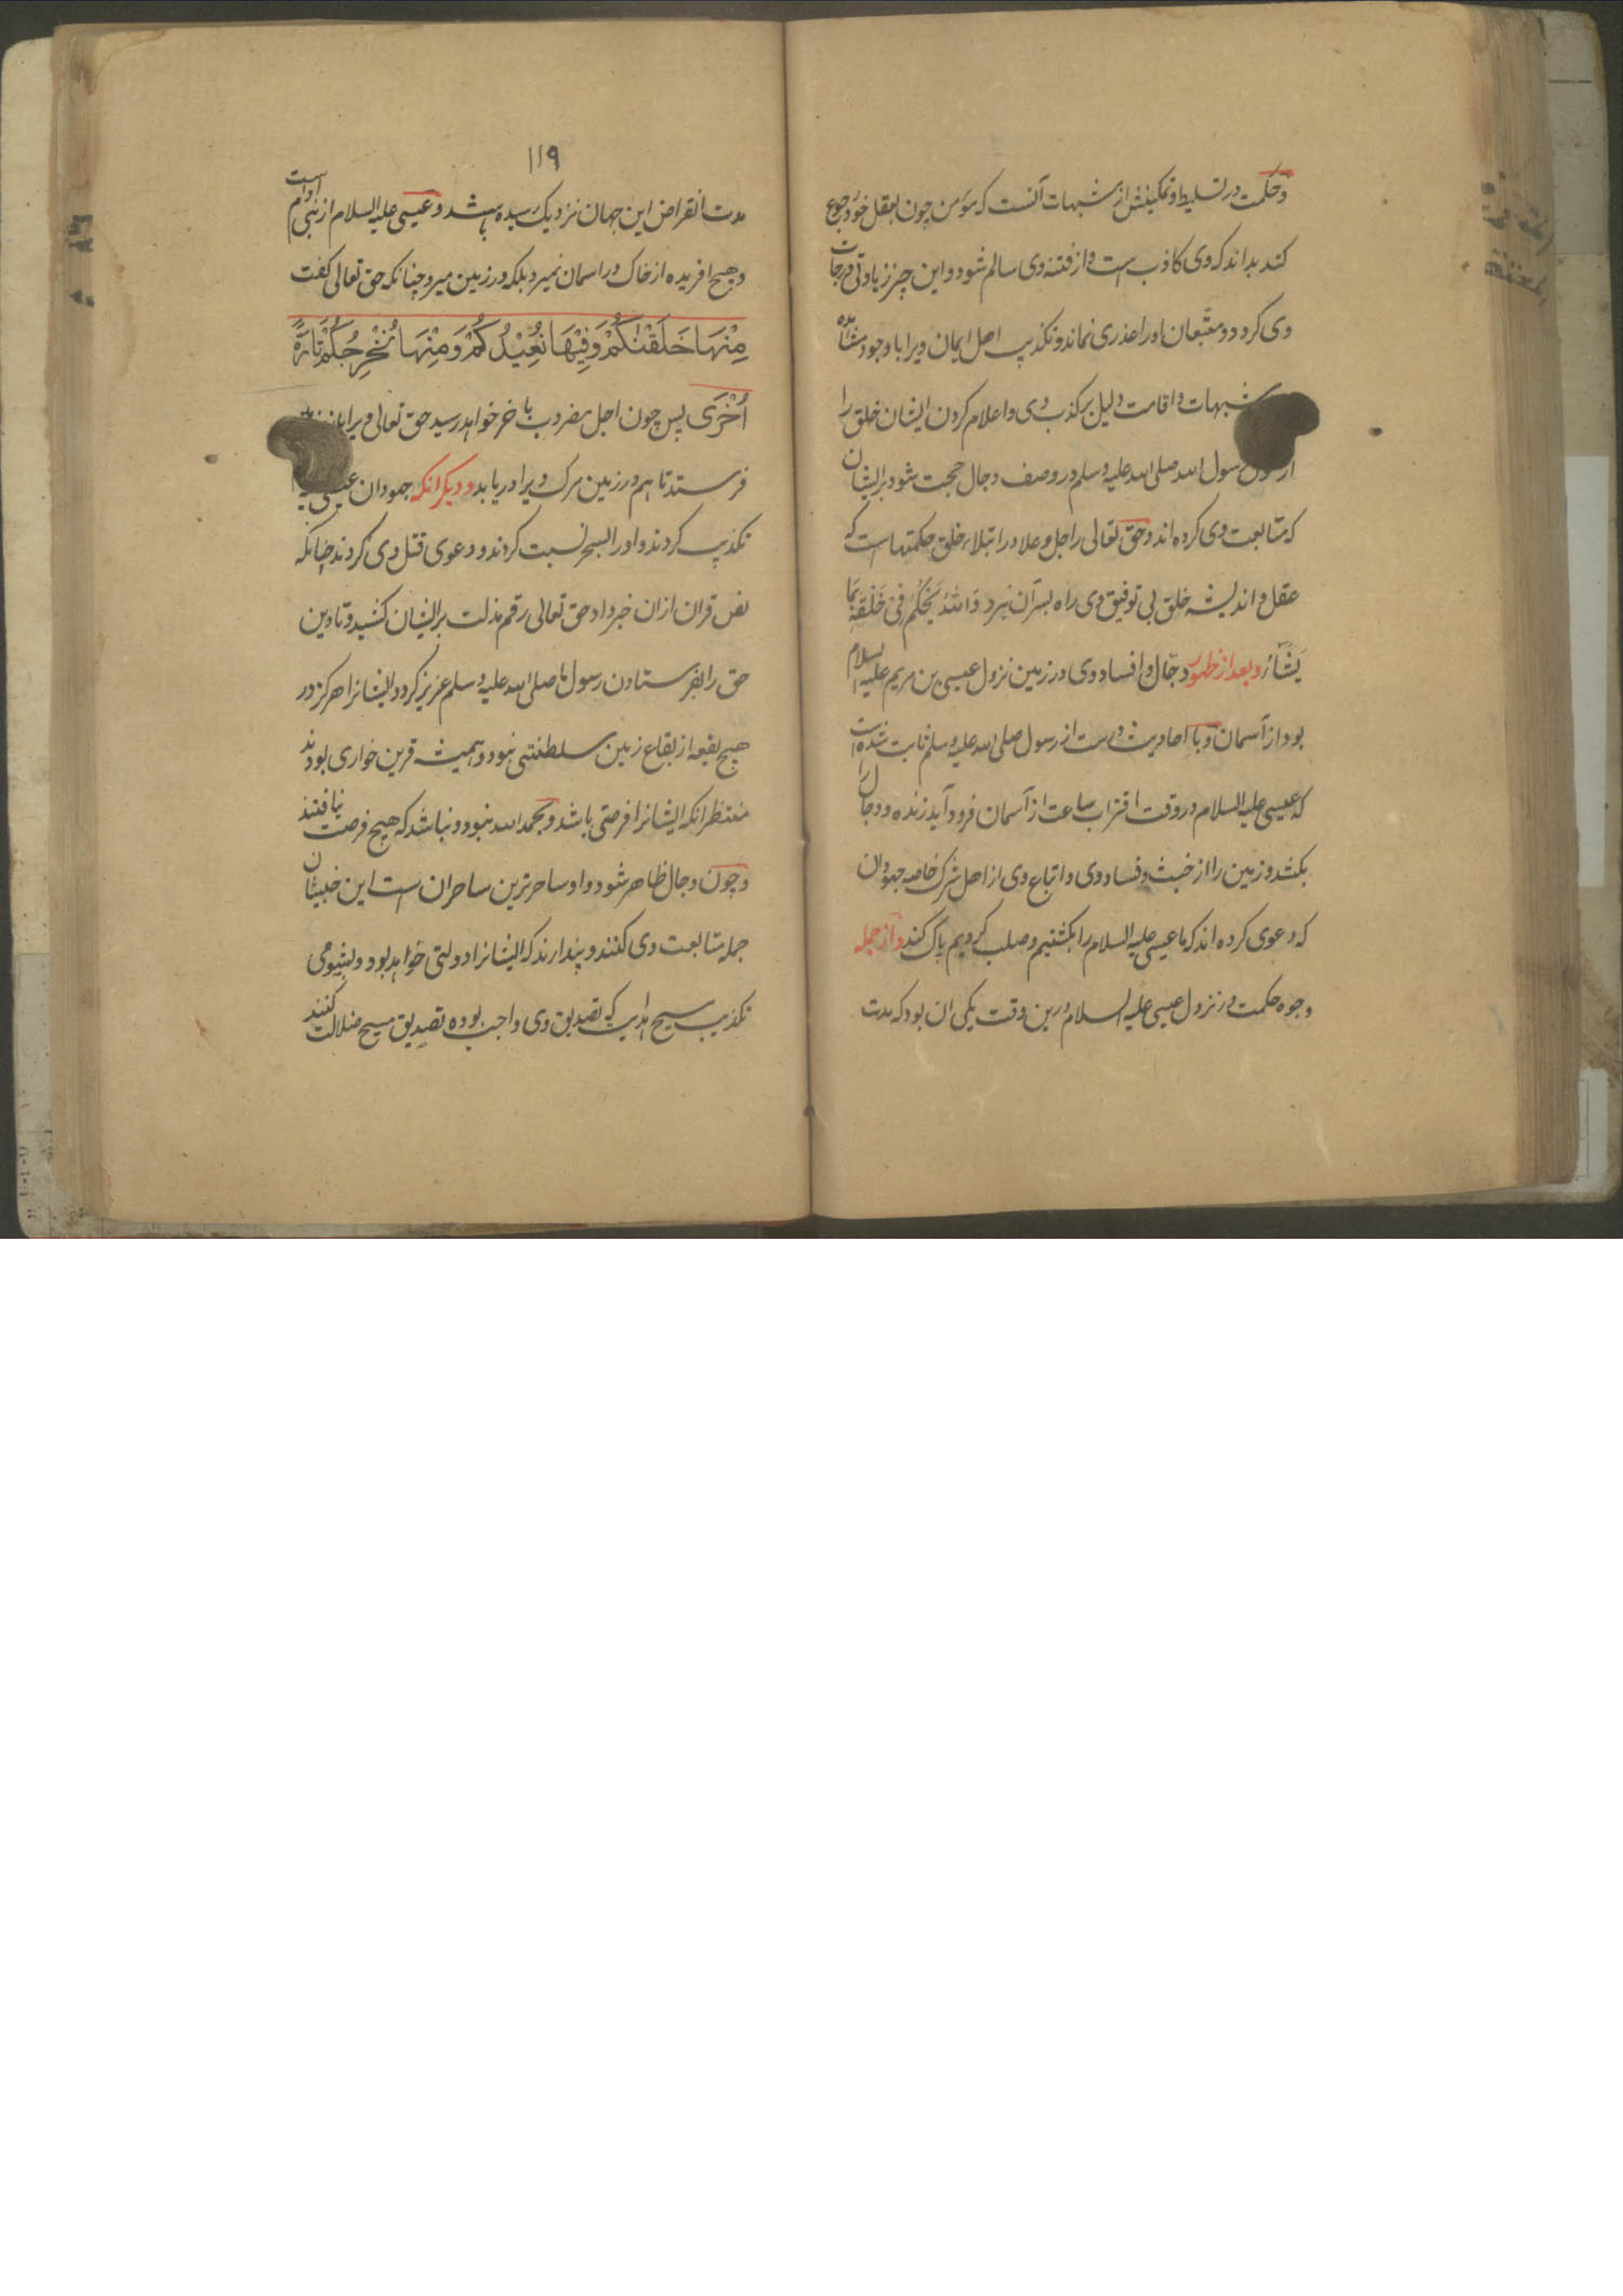 وحکمت در تسلیط و تمکینش از شبهات آنست که مؤمن چون بعقل خود رجوع
کند بداند که وی کاذب است و از فتنه وی سالم شود و این چیز زیادتی درجات
وی کردد و متبعان او را عذری نماند و تکذیب اهل ایمان ویرا با وجود مشاهده
شبهات و اقامت دلیل بر کذب وی و اعلام کردن ایشان خلق را
از رسول الله صلی الله علیه وسلم در وصف دجال حجت شود بر ایشان
که متابعت وی کرده اند و حق تعالی را جل و علا در ابتلاء خلق حکمتهاست که
عقل و اندیشه خلق بی توفیق وی راه بسرّ آن نبرد وَاللّٰهُ یَحْکُمُ فِیْ خَلْقِهٖ بِمَا
یَشَآءُ و بعد از ظهور دجّال و افساد وی در زمین نزول عیسی بن مریم علیه السلام
بود از آسمان و با احادیث درست از رسول صلی الله علیه وسلم ثابت شده است
که عیسی علیه السلام در وقت اقتراب ساعت از آسمان فرود آید زنده و دجال را
بکشد و زمین را از خبث و فساد وی و اتباع وی از اهل شرک خاصه جهودان
که دعوی کرده اند که ما عیسی علیه السلام را بکشتیم و صلب کردیم پاک کند و از جمله
وجوه حکمت در نزول عیسی علیه السلام درین وقت یکی ان بود که مدت
۱۱۹
مدت انقراض این جهان نزدیک رسیده باشد و عیسی علیه السلام از بنی آدم است
و هیچ افریده از خاک در اسمان نمیرد بلکه در زمین میرد چنانکه حق تعالی کفت
مِنْهَا خَلَقْنٰکُمْ وَفِیْهَا نُعِیْدُکُمْ وَمِنْهَا نُخْرِجُکُمْ تَارَةً
اُخْرَی پس چون اجل مضروب باخر خواهد رسید حق تعالی ویرا
فرستد تا هم در زمین مرک ویرا دریابد و دیکر انکه جهودان عیسی
تکذیب کردند و او را بسحر نسبت کردند و دعوی قتل وی کردند چنانکه
نص قران ازان خبر داد حق تعالی رقم مذلت بر ایشان کشید و تا دین
حق را بفرستادن رسول ما صلی الله علیه وسلم عزیز کرد و ایشانرا هرکز در
هیچ بقعه از بقاع زمین سلطنتی نبود و همیشه قرین خواری بودند
منتظر انکه ایشانرا فرصتی باشد و بحمد الله نبود و نباشد که هیچ فرصت نیافتند
و چون دجال ظاهر شود و او ساحرترین ساحران است این خبیثان
جمله متابعت وی کنند و پندارند که ایشانرا دولتی خواهد بود و بشومی
تکذیب مسیح هدایت که تصدیق وی واجب بوده تصدیق مسیح ضلالت کنند